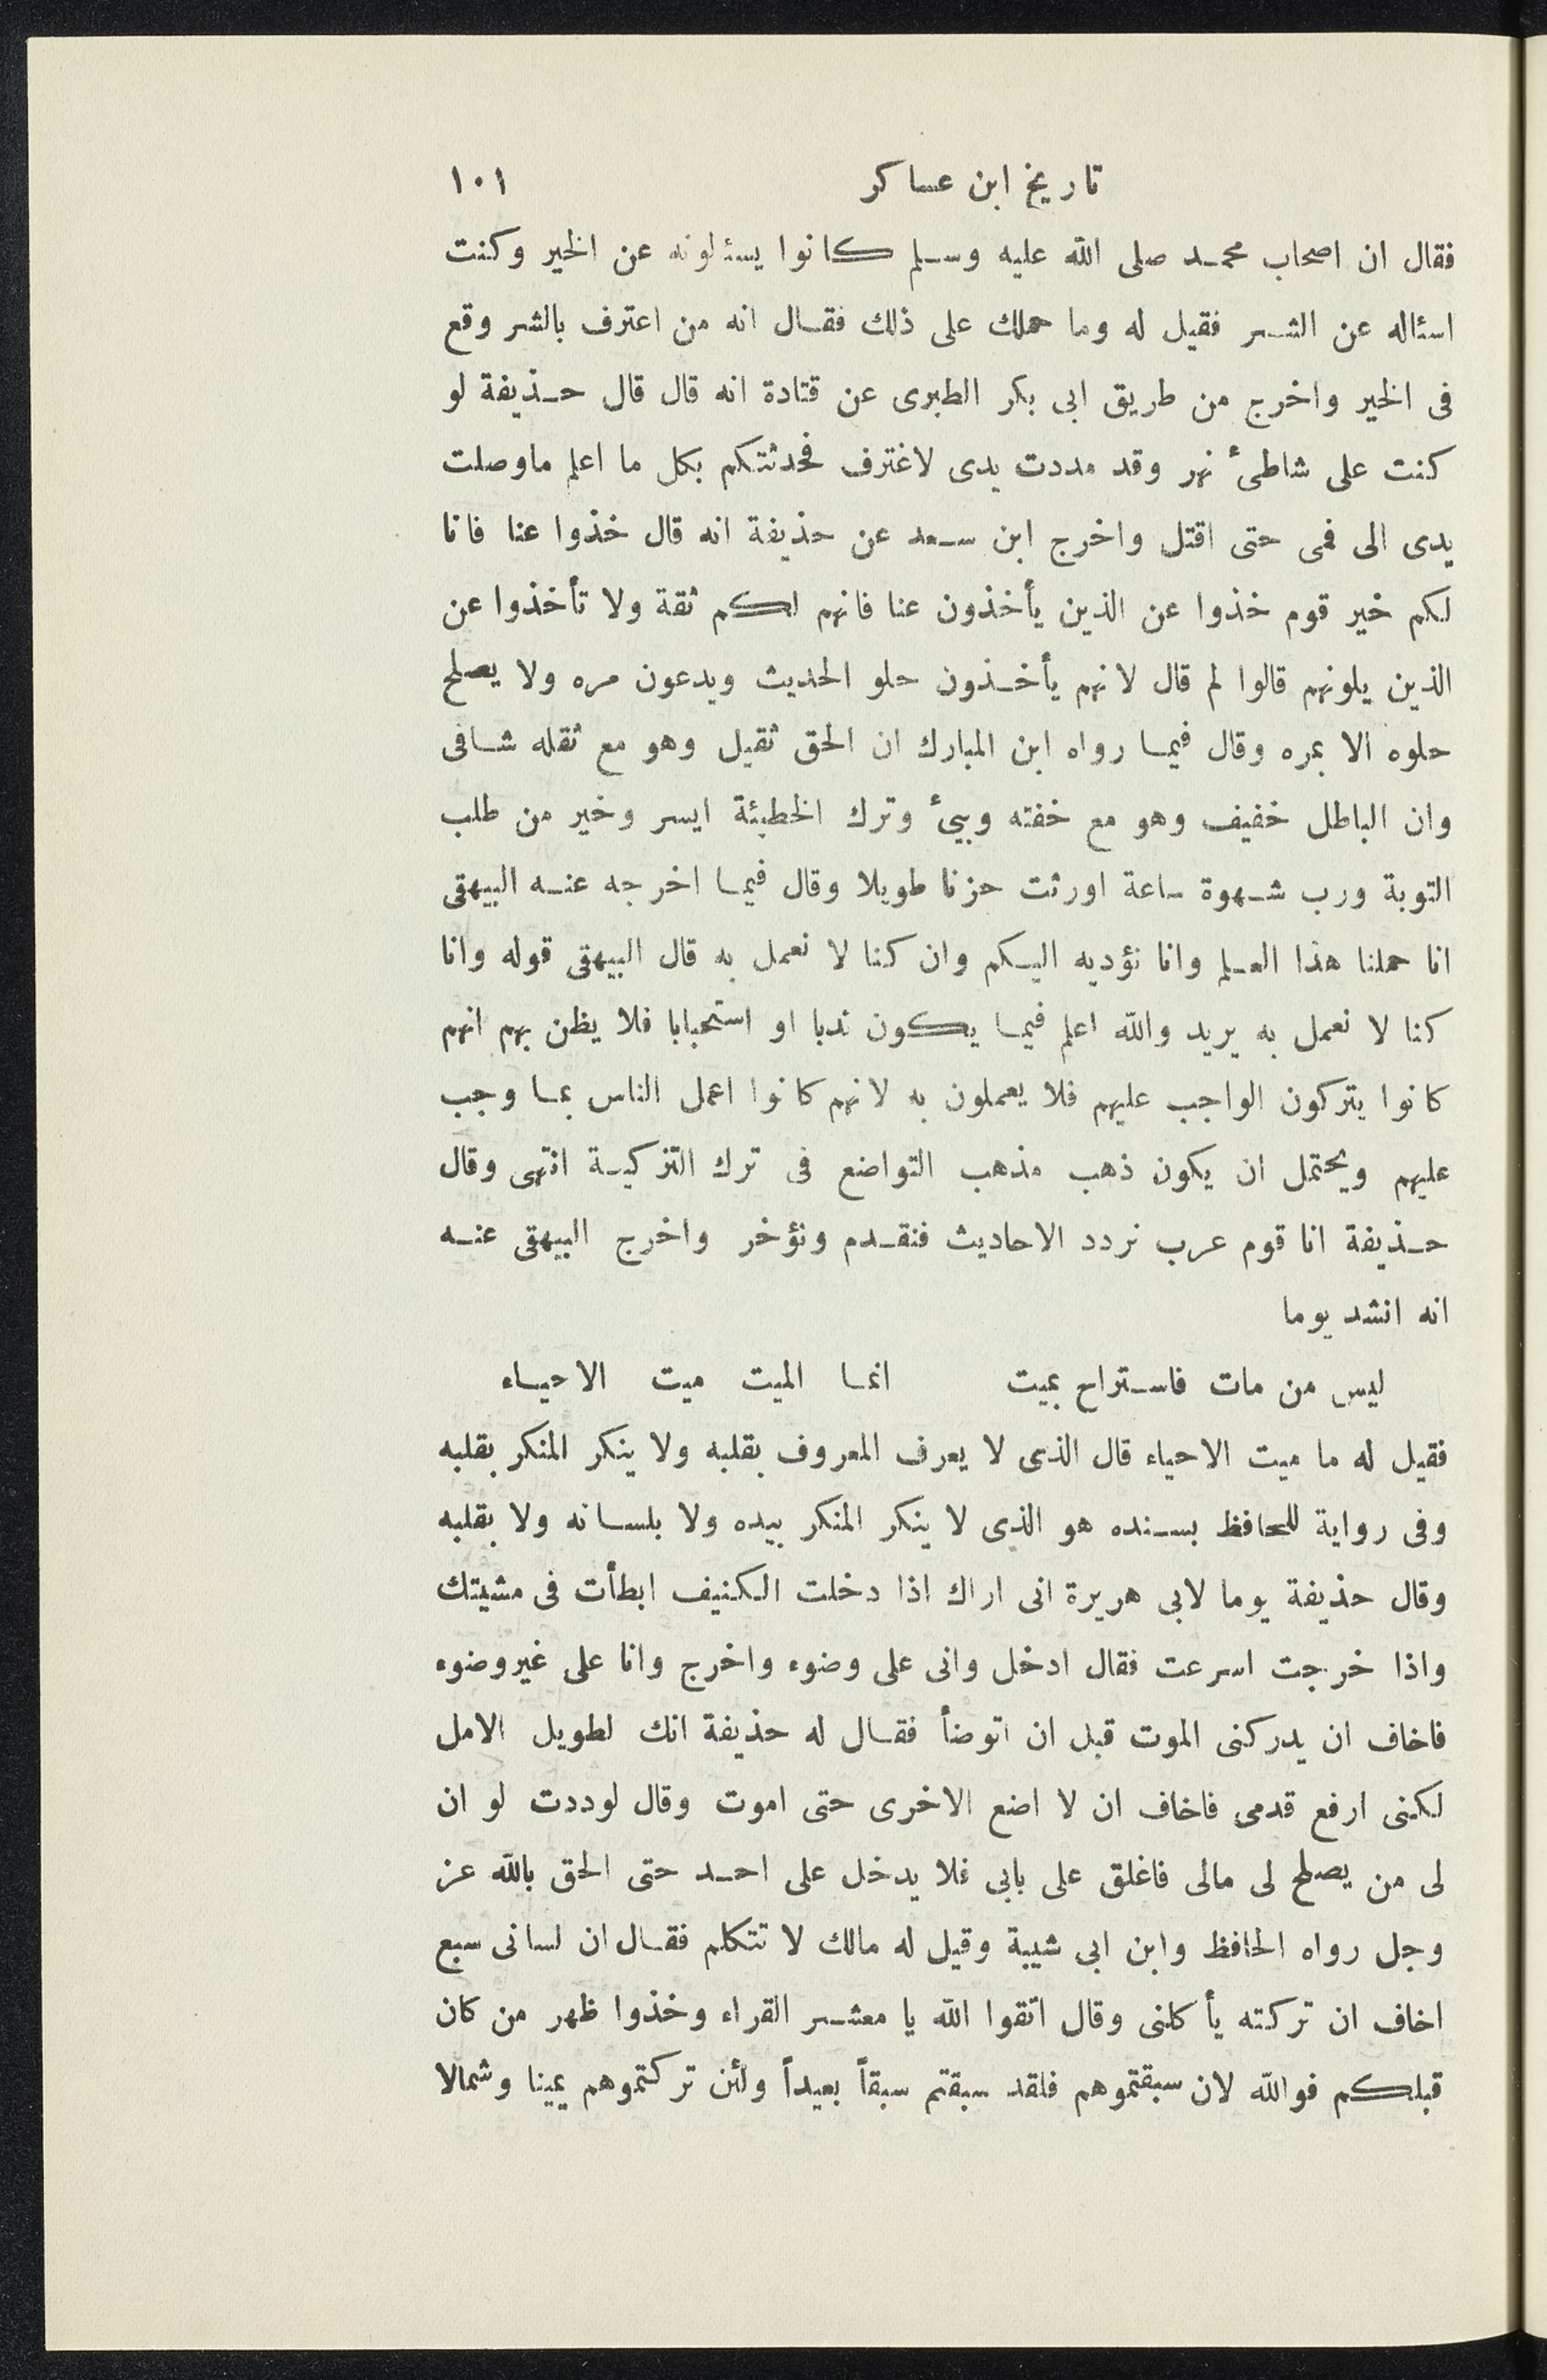 تاريخ ابن عساكر ١٠١
فقال ان اصحاب محمد صلى الله عليه وسلم كانوا يسئلونه عن الخير وكنت
اسئاله عن الشر فقيل له وما حملك على ذلك فقال انه من اعترف بالشر وقع
فى الخير واخرج من طريق ابى بكر الطبرى عن قتادة انه قال قال حذيفة لو
كنت على شاطئ نهر وقد مددت يدى لاغترف فحدثتكم بكل ما اعلم ماوصلت
يدى الى فمى حتى اقتل واخرج ابن سعد عن حذيفة انه قال خذوا عنا فانا
لكم خير قوم خذوا عن الذين يأخذون عنا فانهم لكم ثقة ولا تأخذوا عن
الذين يلونهم قالوا لم قال لانهم يأخذون حلو الحديث ويدعون مره ولا يصلح
حلوه الا بمره وقال فيما رواه ابن المبارك ان الحق ثقيل وهو مع ثقله شافى
وان الباطل خفيف وهو مع خفته وبيئ وترك الخطيئة ايسر وخير من طلب
التوبة ورب شهوة ساعة اورثت حزنا طويلا وقال فيما اخرجه عنه البيهقى
انا حملنا هذا العلم وانا نؤديه اليكم وان كنا لا نعمل به قال البيهقى قوله وانا
كنا لا نعمل به يريد والله اعلم فيما يكون ندبا او استحبابا فلا يظن بهم انهم
كانوا يتركون الواجب عليهم فلا يعملون به لانهم كانوا اعمل الناس بما وجب
عليهم ويحتمل ان يكون ذهب مذهب التواضع فى ترك التزكية انتهى وقال
حذيفة انا قوم عرب نردد الاحاديث فنقدم ونؤخر واخرج البيهقى عنه
انه انشد يوما
ليس من مات فاستراح بميت انما الميت ميت الاحياء
فقيل له ما ميت الاحياء قال الذى لا يعرف المعروف بقلبه ولا ينكر المنكر بقلبه
وفى رواية للحافظ بسنده هو الذى لا ينكر المنكر بيده ولا بلسانه ولا بقلبه
وقال حذيفة يوما لابى هريرة انى اراك اذا دخلت الكنيف ابطأت فى مشيتك
واذا خرجت اسرعت فقال ادخل وانى على وضوء واخرج وانا على غير وضوء
فاخاف ان يدركنى الموت قبل ان اتوضأ فقال له حذيفة انك لطويل الامل
لكنى ارفع قدمى فاخاف ان لا اضع الاخرى حتى اموت وقال لوددت لو ان
لى من يصلح لى مالى فاغلق على بابى فلا يدخل على احد حتى الحق بالله عز
وجل رواه الحافظ وابن ابى شيبة وقيل له مالك لا تتكلم فقال ان لسانى سبع
اخاف ان تركته يأكلنى وقال اتقوا الله يا معشر القراء وخذوا ظهر من كان
قبلكم فوالله لان سبقتموهم فلقد سبقتم سبقاً بعيداً ولئن تركتموهم يمينا وشمالا